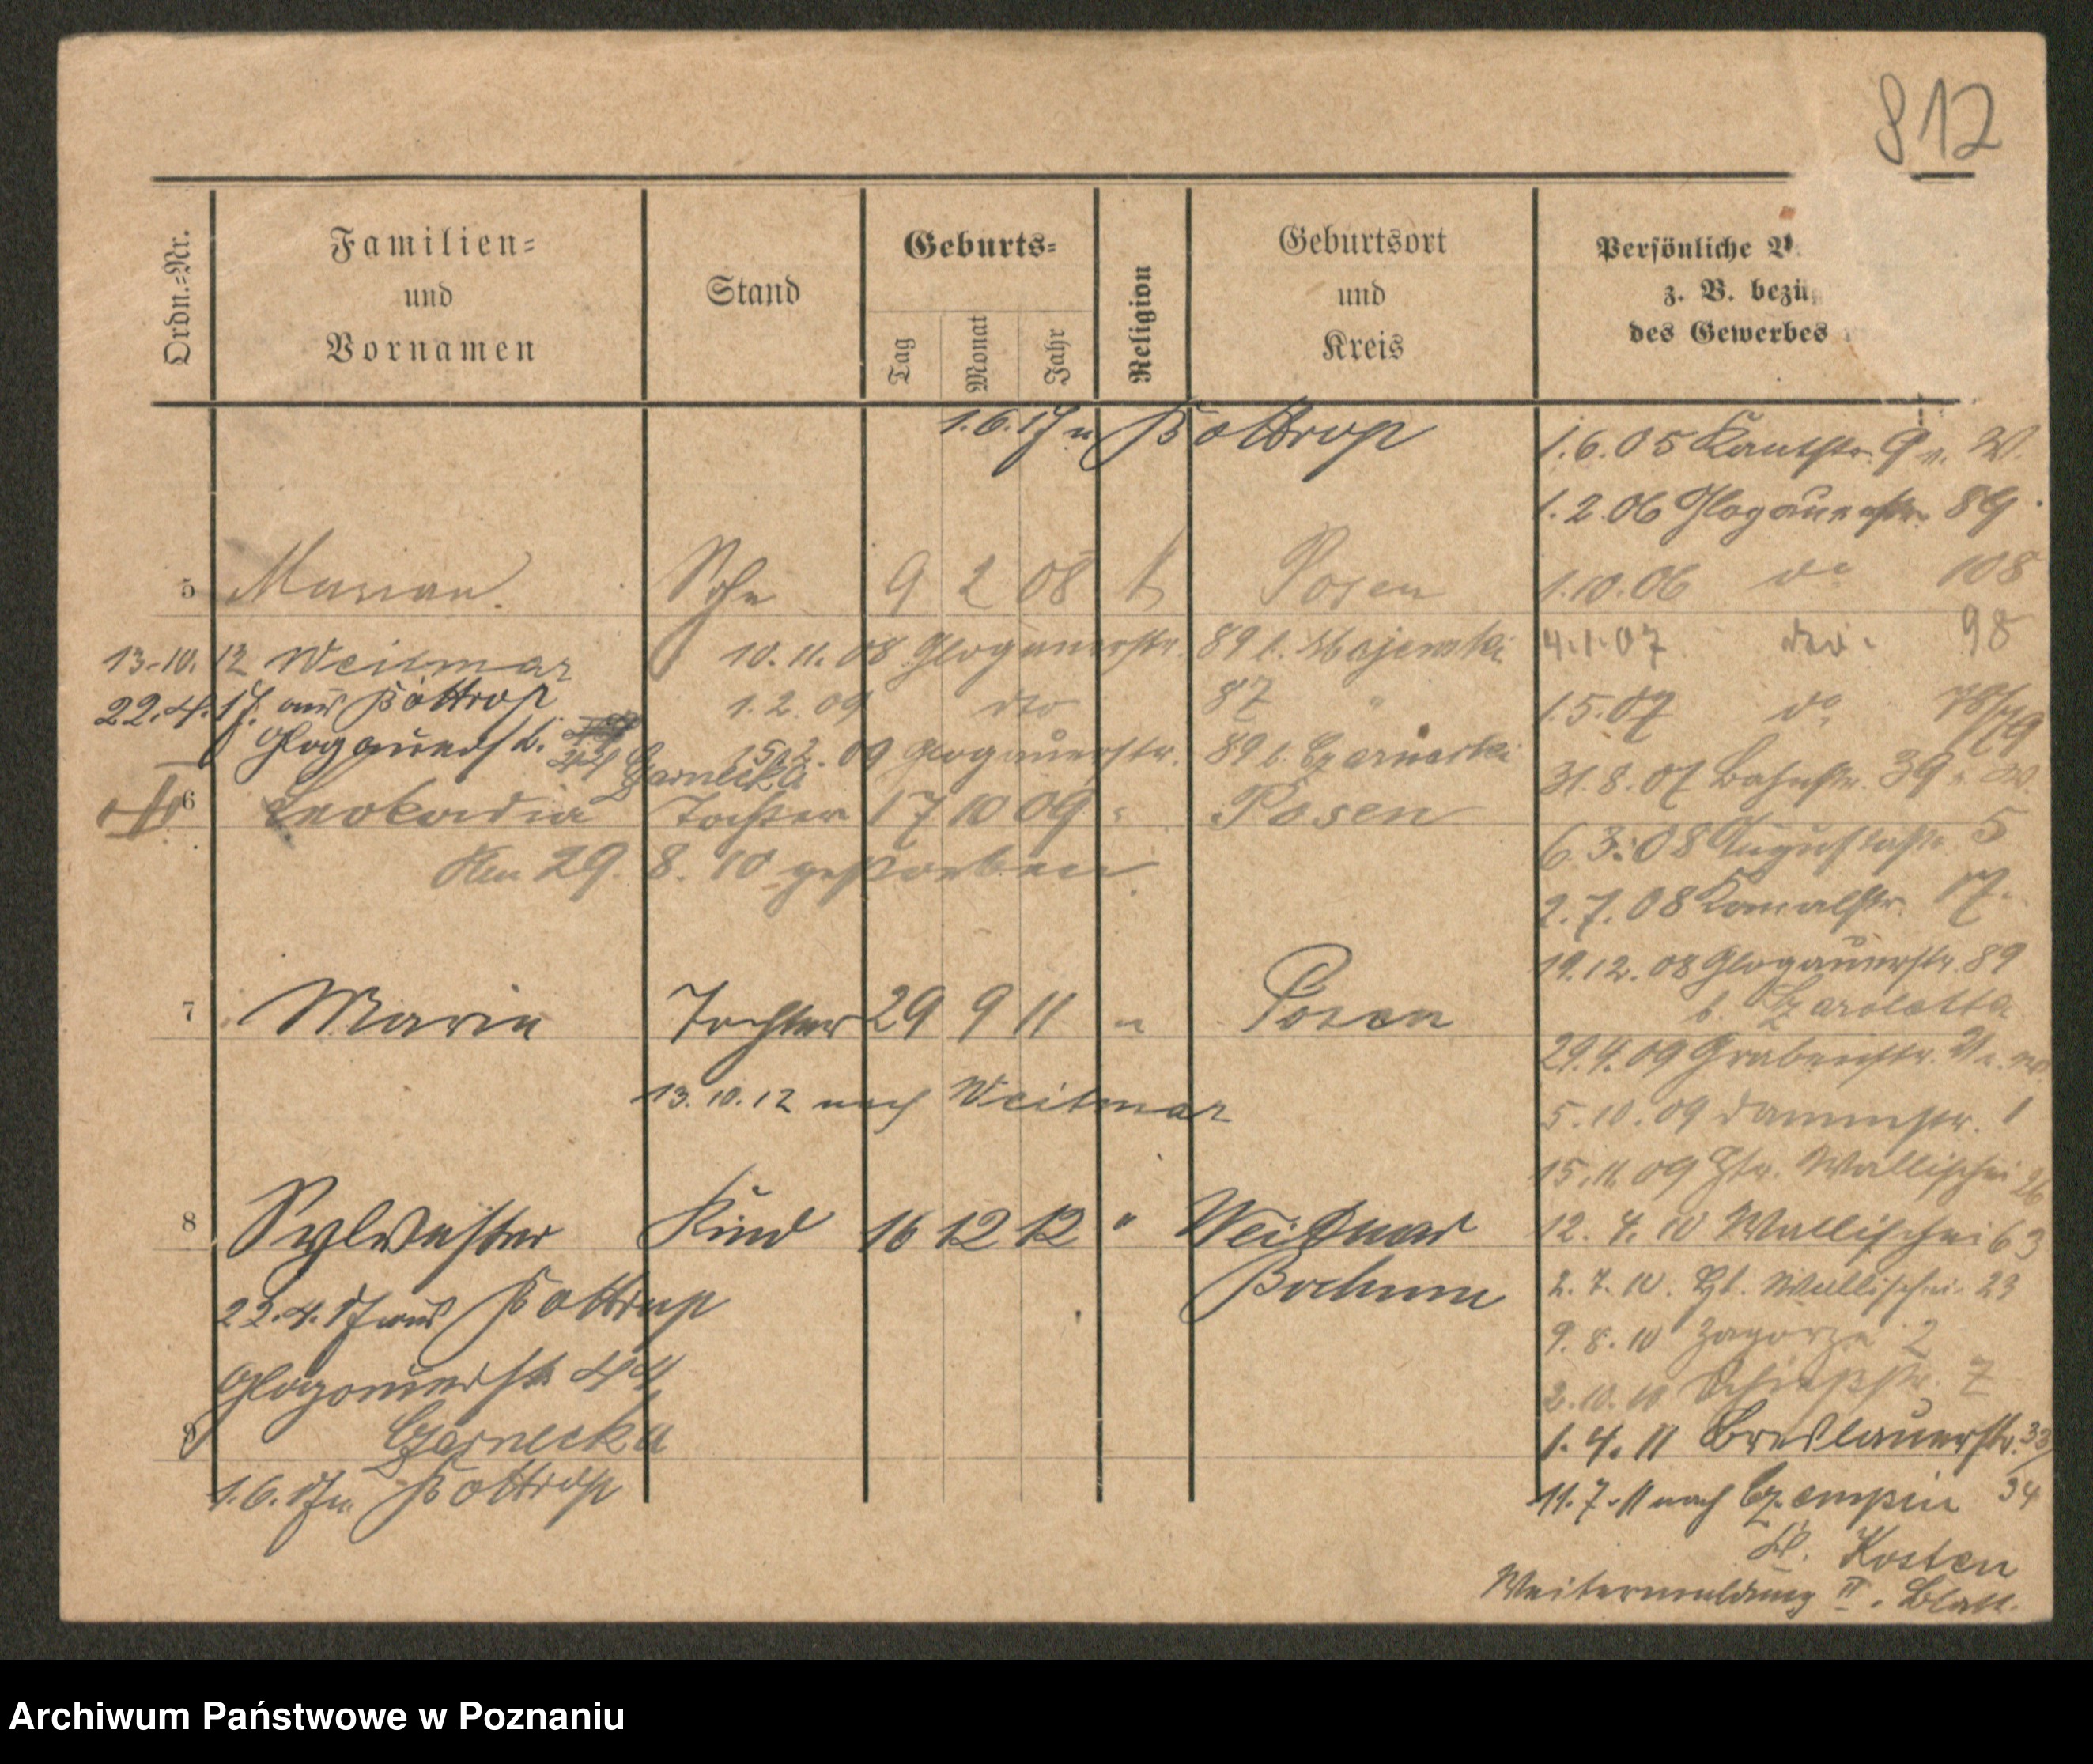 812
Ordn.=Nr.
Familien=
und
Vornamen
Stand
Geburts=
Tag
Monat
Jahr
Religion
Geburtsort
und
Kreis
Persönliche V
z. B. bezüg
des Gewerbes
1.6.17 n Bottrop
1.6.05 Kantstr. 9 n. W.
1.2.06 Glogauerstr. 89
5 Marian. Sohn 9 2 08 k Posen
1.10.06 do 108
13.10.12 Weitmar
10.11.08 Glogauerstr. 89 b. Majewski
4.1.07 dto. 98
22.4.17. aus Bottrop
1.2.09 dto 87 "
1.5.07 do 78/79
Glogauerstr. 44 Czarnecka
15.2.09 Glogauerstr. 89 b. Czarnecki
31.8.07 Bahnstr. 39 n. W.
6 Leokadia Tochter 17 10 09 " Posen
6.3.08 Augustastr. 5
den 29. 8. 10 gestorben
2.7.08 Kanalstr. 17.
19.12.08 Glogauerstr. 89
b.
7 Marie Tochter 29 9 11 " Posen
29.4.09 Grabenstr.
13.10.12 nach Weitmar
5.10.09 Dammstr. 1
15.11.09 Wallischei 26
8 Sylvester Kind 16 12 12 " Weitmar
12.4.10 Wallischei 63
Bochum
2.7.10. Wallischei 23
22.4.17 aus Bottrop
9.8.10 Zagorze 2
Glogauerstr. 44
2.10.10 Schießstr. 7
9 Czarnecka
1.4.11 Breslauerstr. 33/34
1.6.17 n. Bottrop
11.7.11 nach Czempin
Kosten
Weitermeldung II. Blatt.
Archiwum Państwowe w Poznaniu